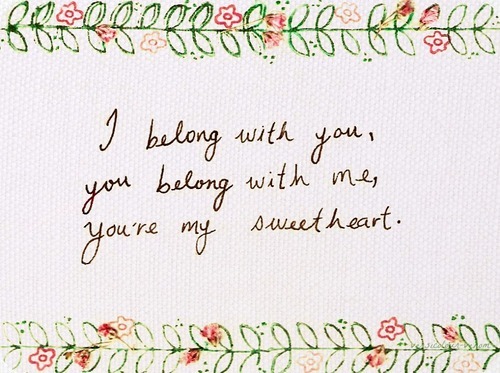 I belong with you,
you belong with me,
you're my sweetheart.